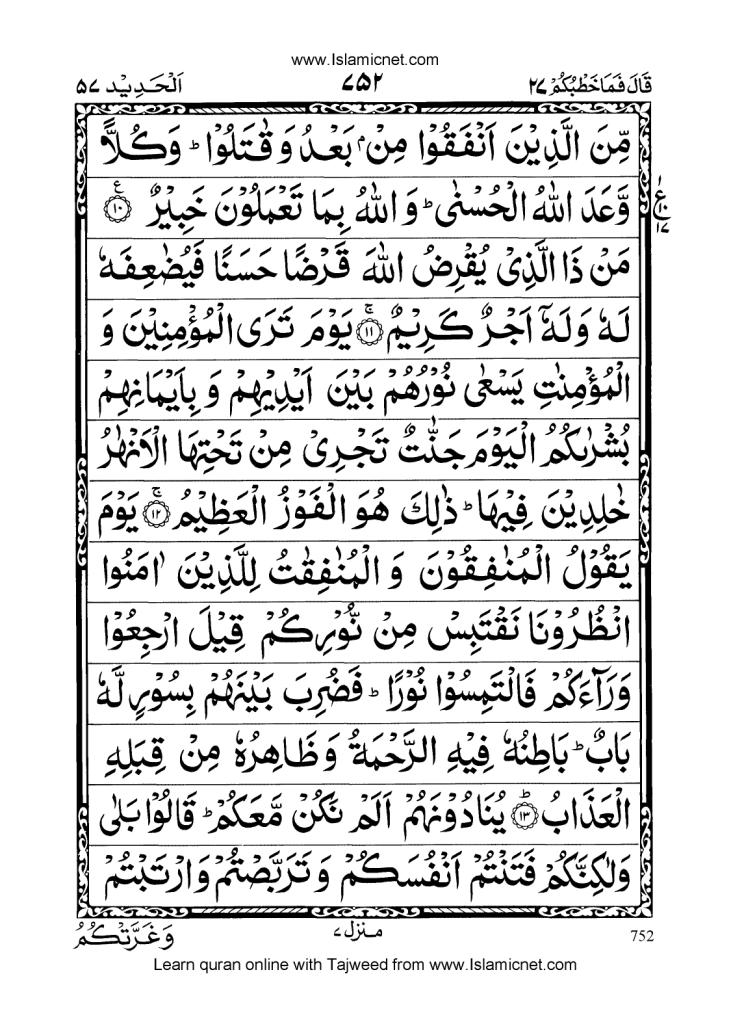 www.Islamicnet.com
قَالَ فَمَا خَطْبُكُمْ ٢٧
٧٥٢
اَلْحَدِيْد ٥٧
مِّنَ الَّذِيْنَ اَنْفَقُوْا مِنْۢ بَعْدُ وَ قٰتَلُوْا ؕ وَكُلًّا
وَّعَدَ اللّٰهُ الْحُسْنٰى ؕ وَ اللّٰهُ بِمَا تَعْمَلُوْنَ خَبِيْرٌ ۧ‏ ﴿۱۰﴾
ع
١٠
١٧
مَنْ ذَا الَّذِيْ يُقْرِضُ اللّٰهَ قَرْضًا حَسَنًا فَيُضٰعِفَهٗ
لَهٗ وَلَهٗۤ اَجْرٌ كَرِيْمٌ ۚ‏ ﴿۱۱﴾ يَوْمَ تَرَى الْمُؤْمِنِيْنَ وَ
الْمُؤْمِنٰتِ يَسْعٰى نُوْرُهُمْ بَيْنَ اَيْدِيْهِمْ وَ بِاَيْمَانِهِمْ
بُشْرٰىكُمُ الْيَوْمَ جَنّٰتٌ تَجْرِيْ مِنْ تَحْتِهَا الْاَنْهٰرُ
خٰلِدِيْنَ فِيْهَا ؕ ذٰلِكَ هُوَ الْفَوْزُ الْعَظِيْمُ ۚ‏ ﴿۱۲﴾ يَوْمَ
يَقُوْلُ الْمُنٰفِقُوْنَ وَ الْمُنٰفِقٰتُ لِلَّذِيْنَ اٰمَنُوا
انْظُرُوْنَا نَقْتَبِسْ مِنْ نُّوْرِكُمْ قِيْلَ ارْجِعُوْا
وَرَآءَكُمْ فَالْتَمِسُوْا نُوْرًا ؕ فَضُرِبَ بَيْنَهُمْ بِسُوْرٍ لَّهٗ
بَابٌ ؕ بَاطِنُهٗ فِيْهِ الرَّحْمَةُ وَ ظَاهِرُهٗ مِنْ قِبَلِهِ
الْعَذَابُ ؕ‏ ﴿۱۳﴾ يُنَادُوْنَهُمْ اَلَمْ نَكُنْ مَّعَكُمْ ؕ قَالُوْا بَلٰى
وَلٰكِنَّكُمْ فَتَنْتُمْ اَنْفُسَكُمْ وَ تَرَبَّصْتُمْ وَارْتَبْتُمْ
752
منزل ٧
وَغَرَّتْكُمُ
Learn quran online with Tajweed from www.Islamicnet.com